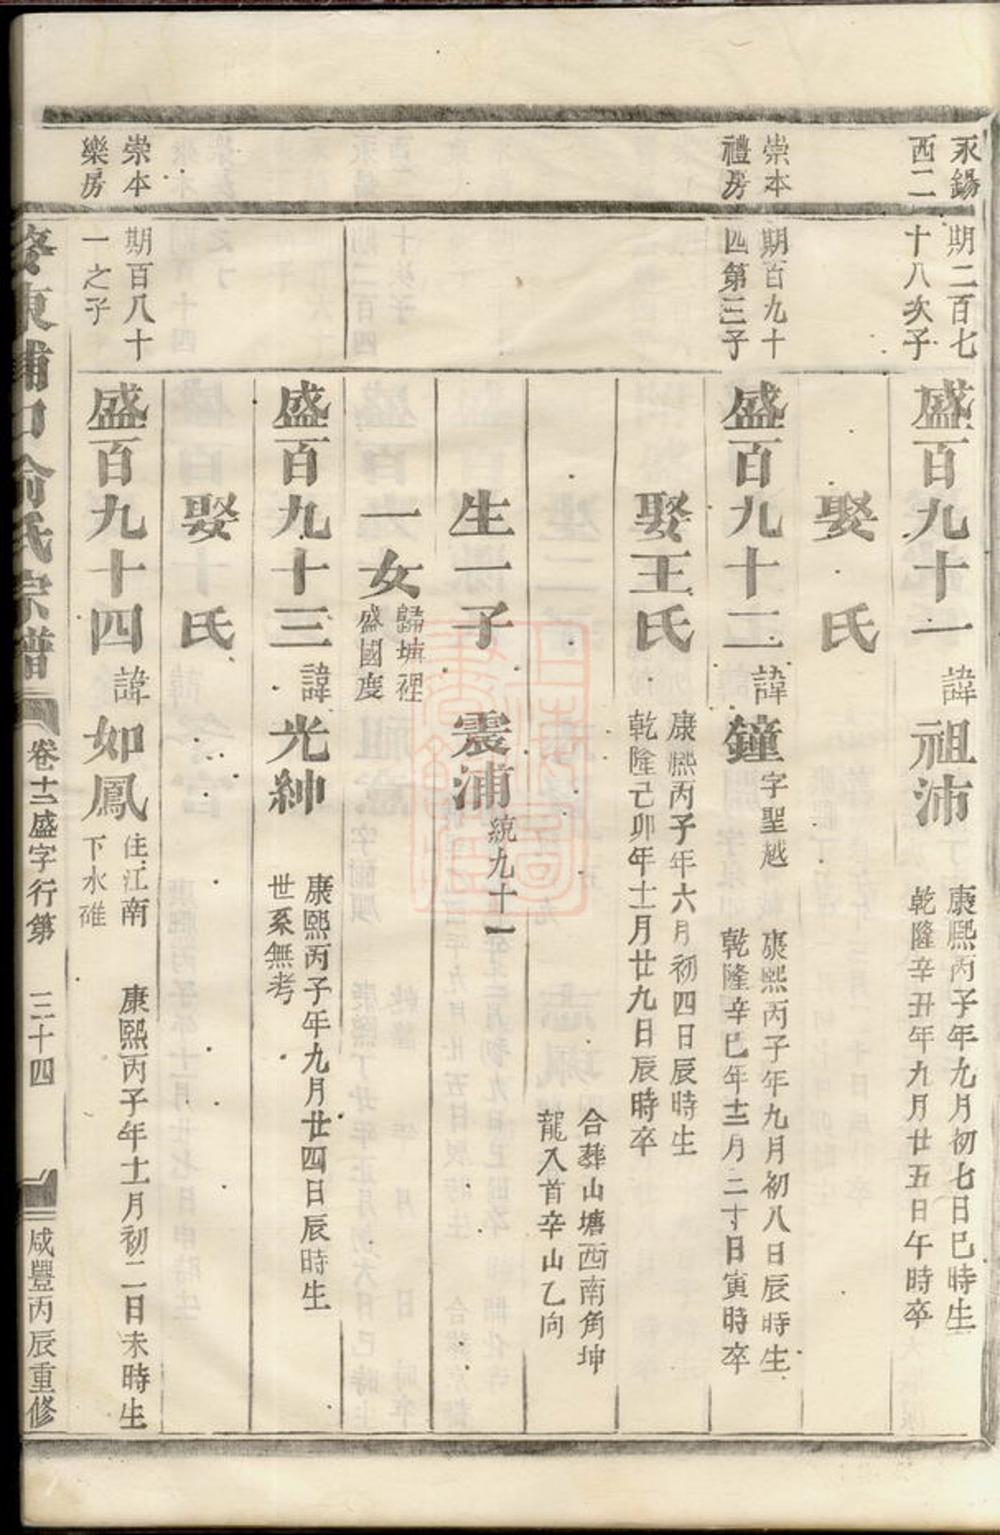 永錫
西二
期二百七
十八次子
盛百九十一
諱
祖沛
康熙丙子年九月初七日巳時生
乾隆辛丑年九月廿五日午時卒
娶　氏
崇本
禮房
期百九十
四第三子
盛百九十二
諱
鐘
字聖越
康熙丙子年九月初八日辰時生
乾隆辛巳年十二月二十日寅時卒
娶王氏
康熙丙子年六月初四日辰時生
乾隆己卯年十一月廿九日辰時卒
合葬山塘西南角坤
龍入首辛山乙向
生一子
震浦
統九十一
一女
歸塘裡
盛國度
盛百九十三
諱
光紳
康熙丙子年九月廿四日辰時生
世系無考
娶　氏
崇本
樂房
期百八十
一之子
盛百九十四
諱
如鳳
住江南
下水碓
康熙丙子年十一月初二日未時生
東浦口俞氏宗譜
卷十二盛字行第
三十四
咸豐丙辰重修